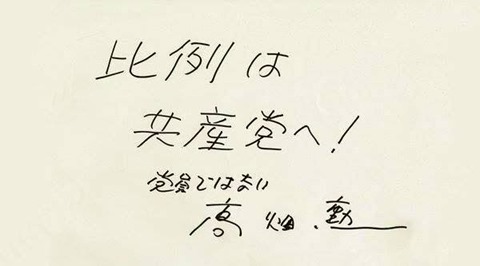 比例は
共産党へ!
党員ではない
高畑 勲